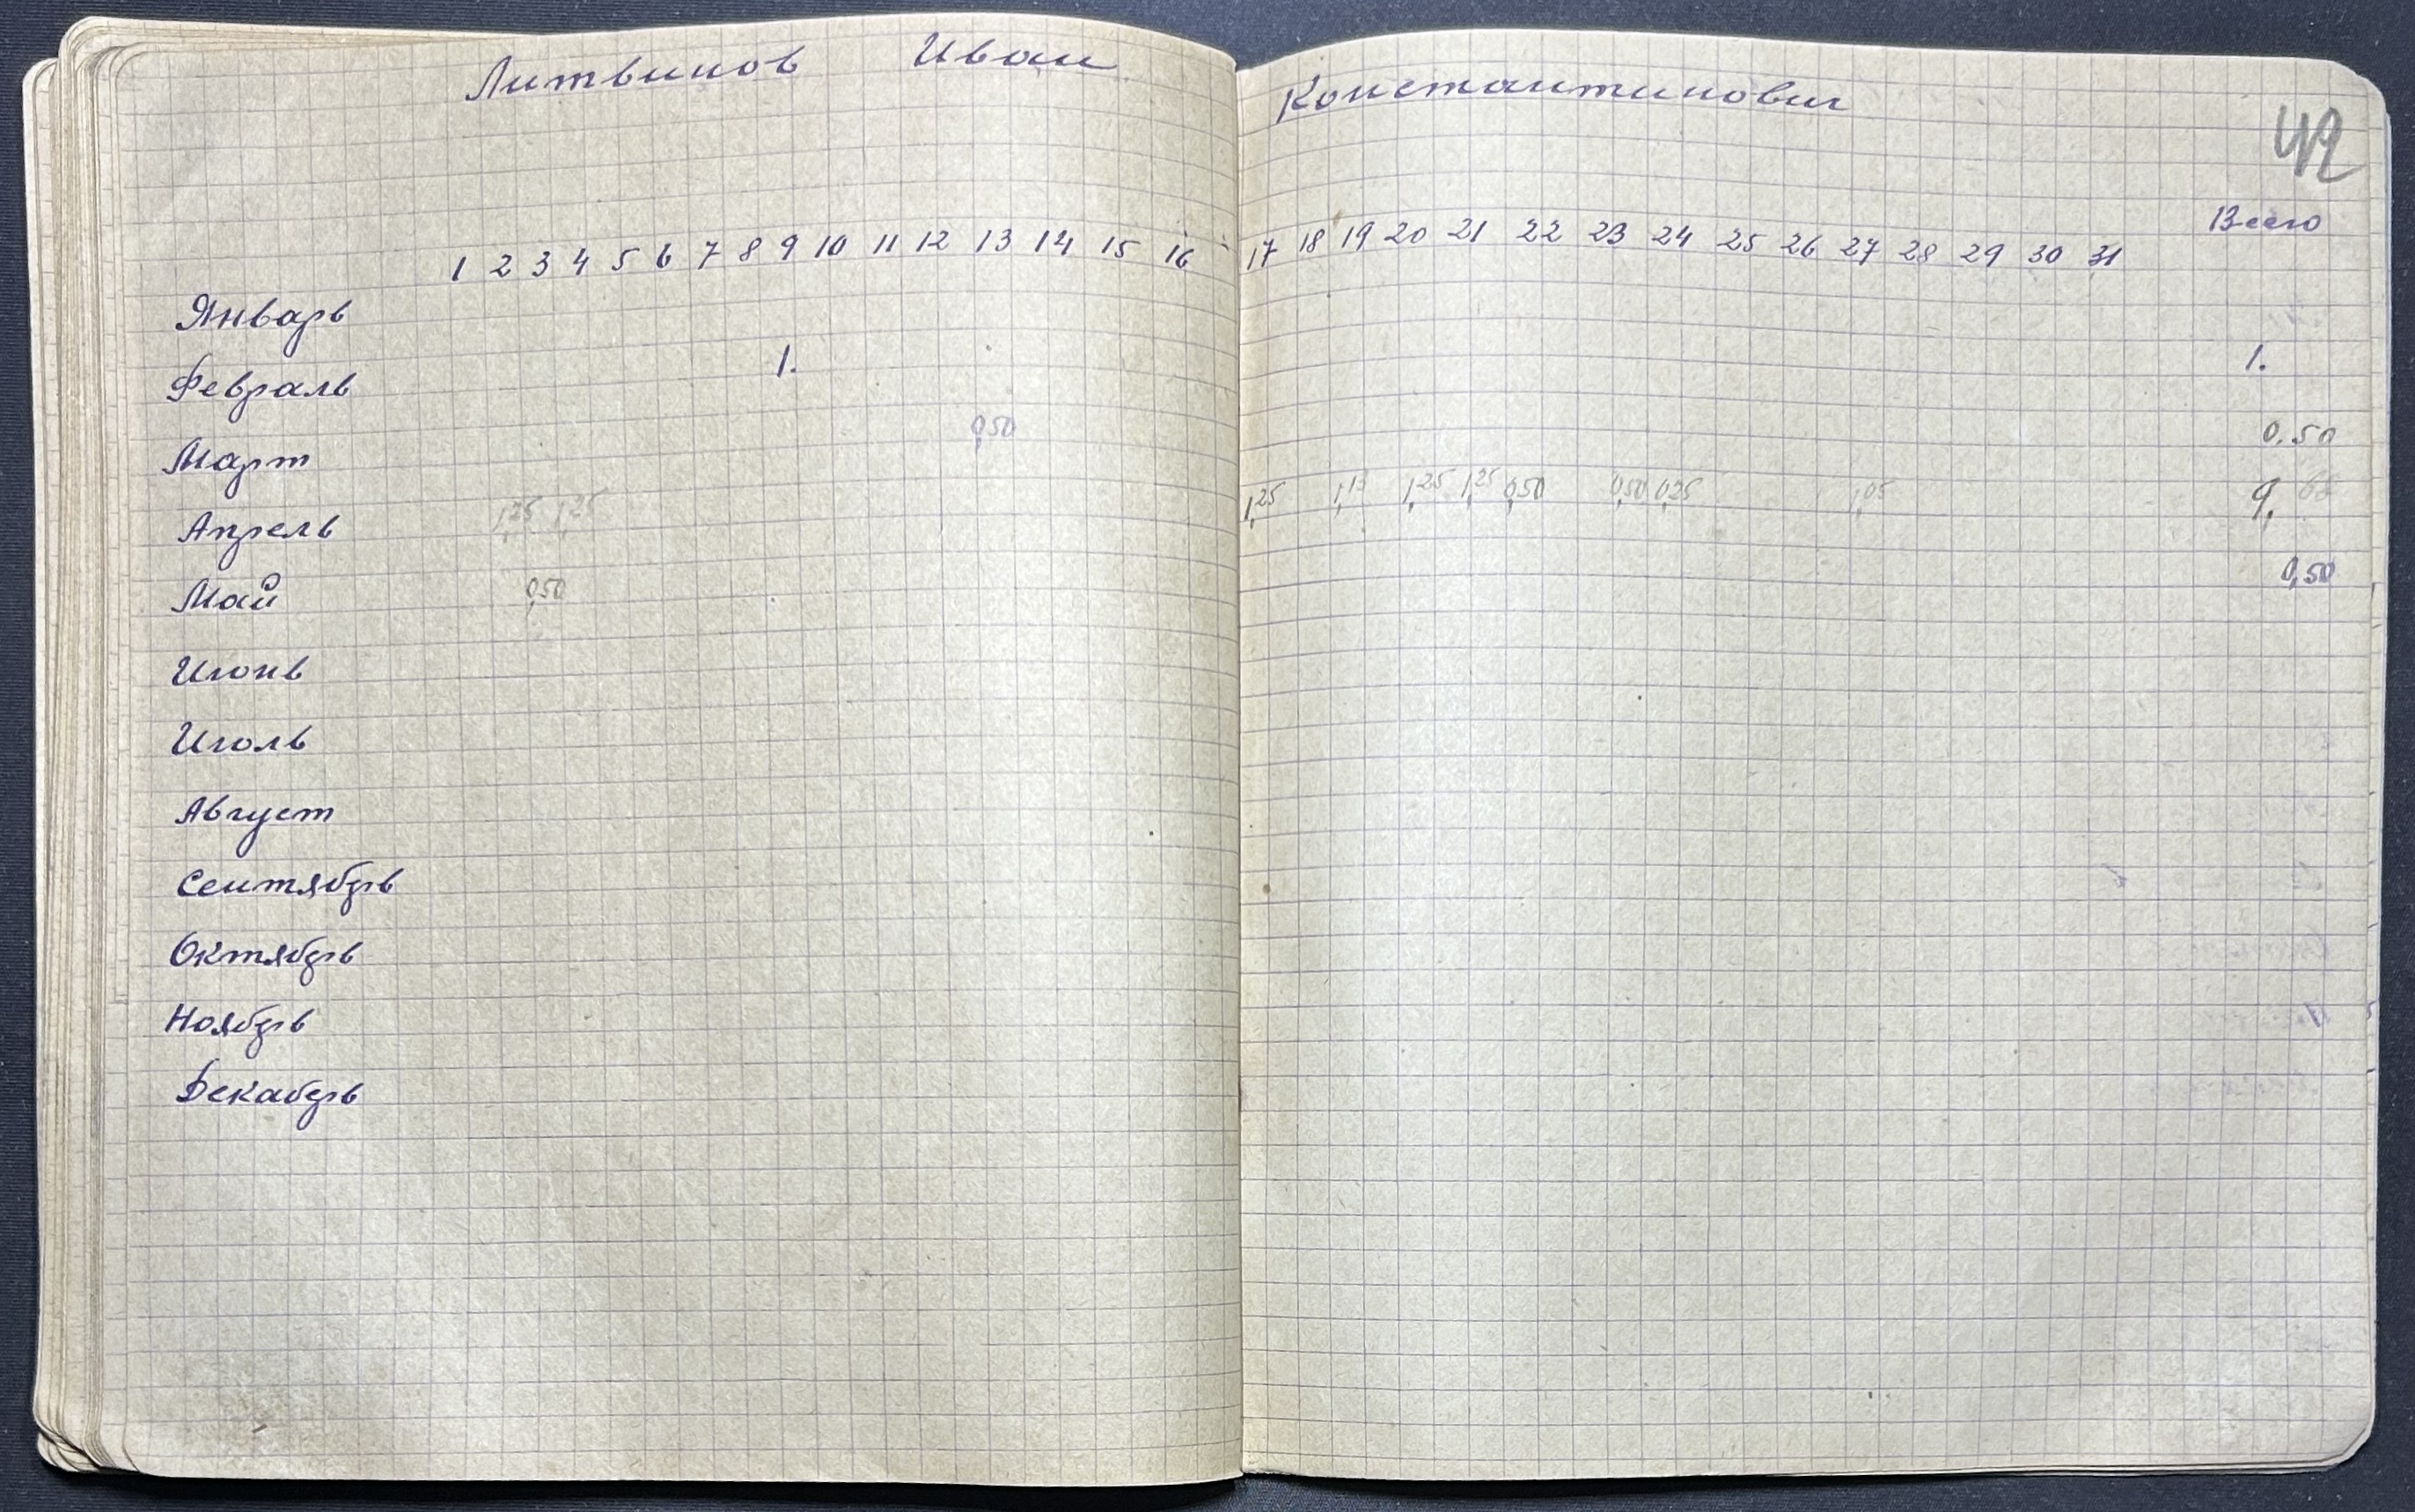 Литвинов Иван Константинович
42
Всего
1 2 3 4 5 6 7 8 9 10 11 12 13 14 15 16 17 18 19 20 21 22 23 24 25 26 27 28 29 30 31
Январь
Февраль 1. 1.
Март 0,50 0.50
Апрель 1,25 1,25 1,25 1,13 1,25 1,25 0,50 0,50 0,25 1,05 9,68
Май 0,50 0,50
Июнь
Июль
Август
Сентябрь
Октябрь
Ноябрь
Декабрь